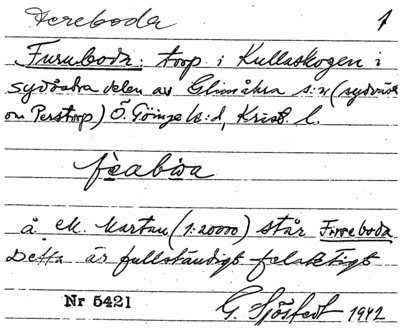 Fereboda 1
Furuboda: torp i Kullaskogen i
sydöstra delen av Glimåkra s:n (sydväst
om Perstorp) Ö. Göinge h:d, Krist. l.
å ek. kartan (1:20000) står Fureboda
Detta är fullständigt felaktigt
Nr 5421 G. Sjöstedt 1942